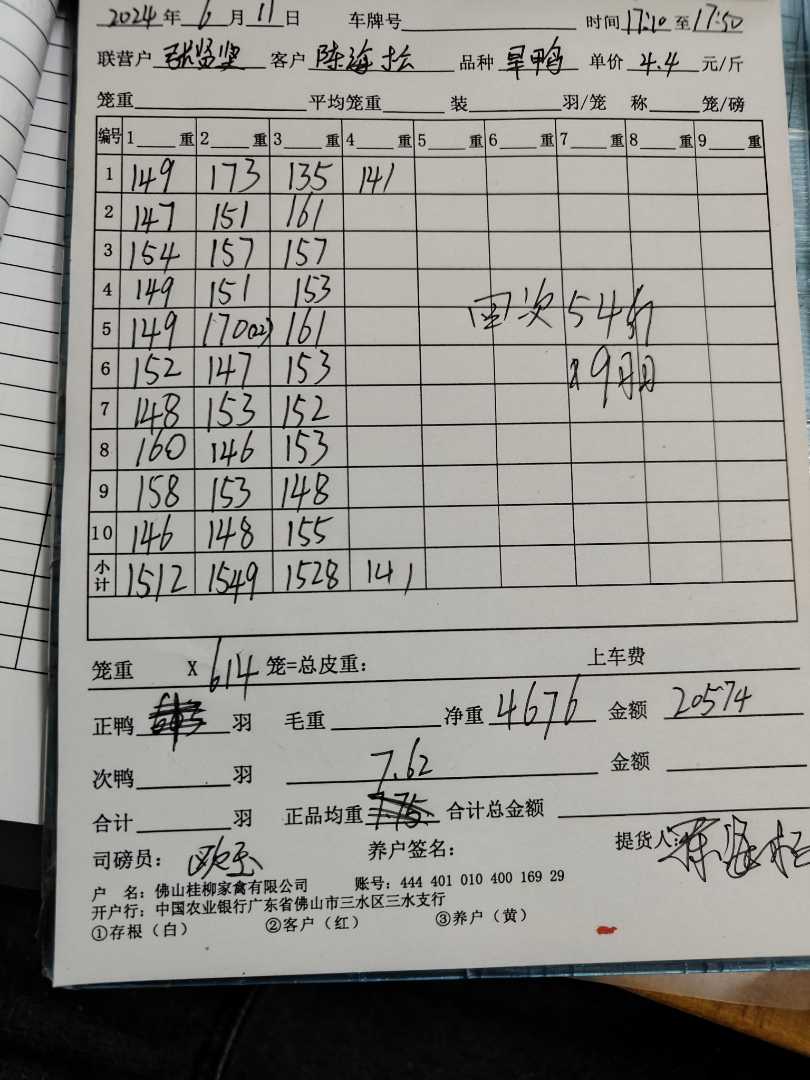 2024 年 6 月 11 日 车牌号 时间 17:10 至 17:50
联营户 客户 陈海松 品种 旱鸭 单价 4.4 元/斤
笼重 平均笼重 装 羽/笼 称 笼/磅
编号 1 重 2 重 3 重 4 重 5 重 6 重 7 重 8 重 9 重
1 149 173 135 141
2 147 151 161
3 154 157 157
4 149 151 153
5 149 170(12) 161
6 152 147 153
7 148 153 152
8 160 146 153
9 158 153 148
10 146 148 155
小计 1512 1549 1528 141
次 54
9
笼重 X 614 笼=总皮重: 上车费
正鸭 羽 毛重 净重 4676 金额 20574
次鸭 羽 7.62 金额
合计 羽 正品均重 7.75 合计总金额
司磅员: 养户签名: 提货人: 陈海松
户 名: 佛山桂柳家禽有限公司 账号: 444 401 010 400 169 29
开户行: 中国农业银行广东省佛山市三水区三水支行
①存根(白) ②客户(红) ③养户(黄)